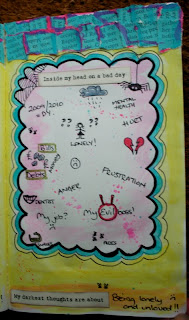 Inside my head on a bad day
2009/2010
MENTAL
HEALTH
??
??
HURT
LONELY!
FRUSTRATION
ANGER
DENTIST
My job?
My Evil boss!
My darkest thoughts are about
Being lonely
and unloved!!